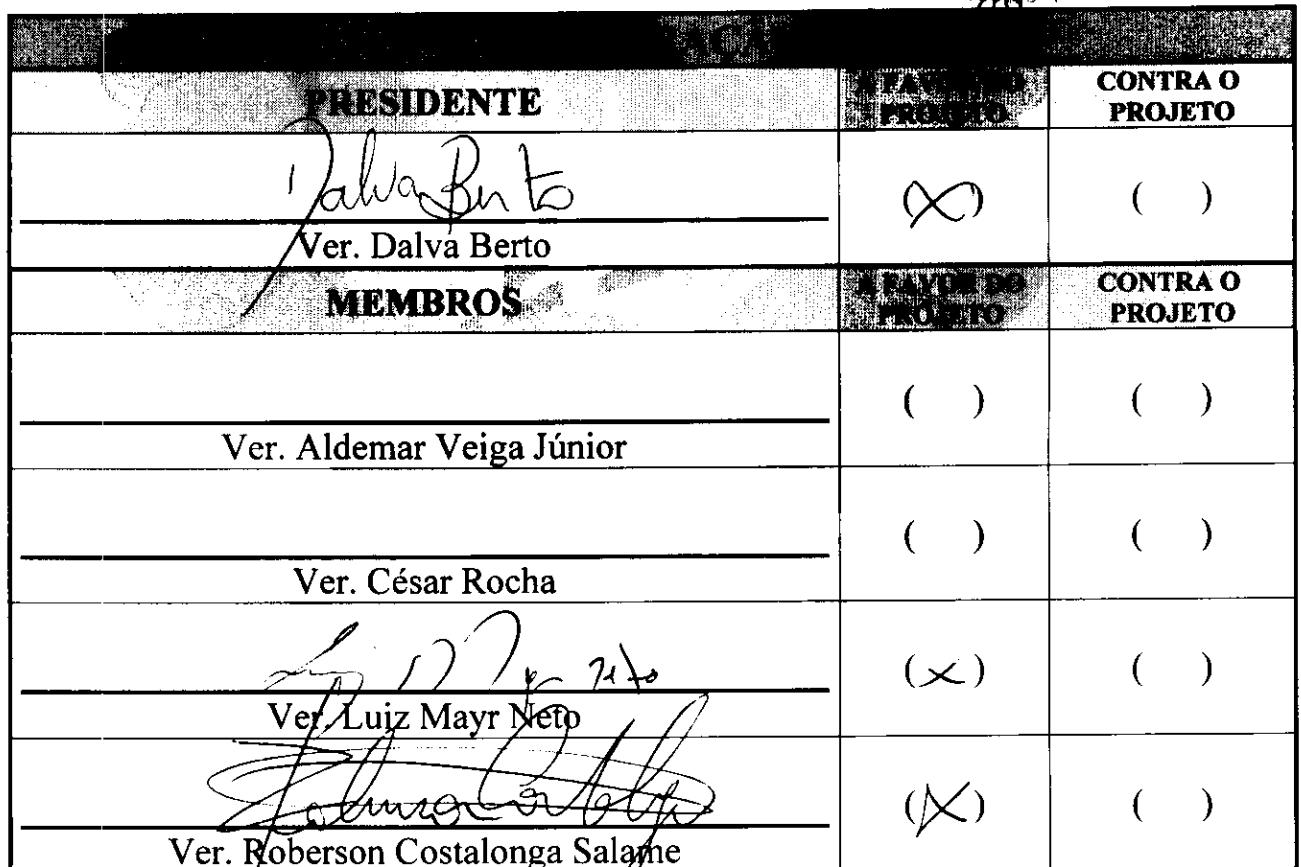 PRESIDENTE
A FAVOR DO PROJETO
CONTRA O PROJETO
Dalva Berto
(X)
( )
Ver. Dalva Berto
MEMBROS
A FAVOR DO PROJETO
CONTRA O PROJETO
( )
( )
Ver. Aldemar Veiga Júnior
( )
( )
Ver. César Rocha
(x)
( )
Ver. Luiz Mayr Neto
(X)
( )
Ver. Roberson Costalonga Salame